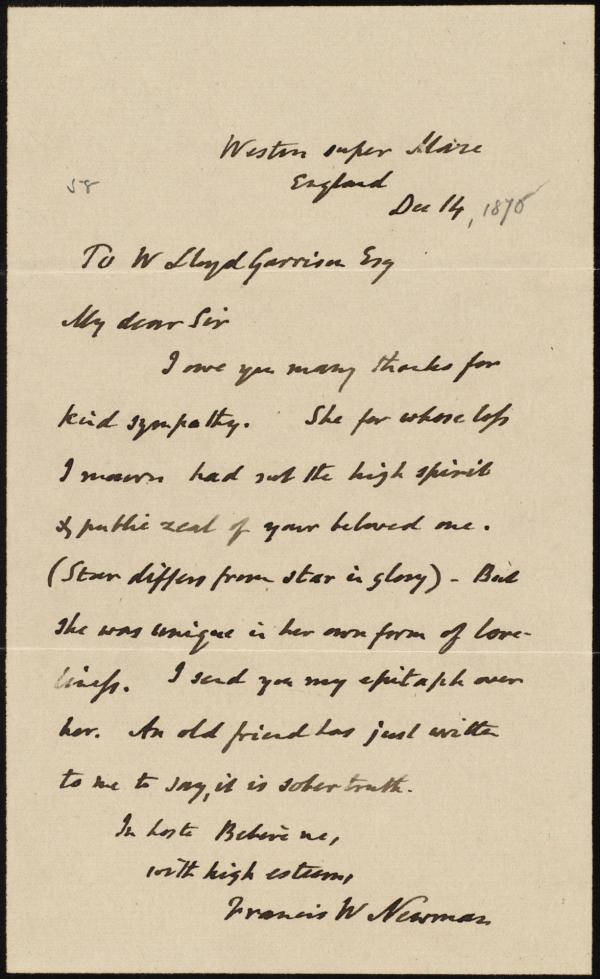 Weston super Mare
England
58
Dec 14, 1876
To W Lloyd Garrison Esq
My dear Sir
I owe you many thanks for
kind sympathy. She for whose loss
I mourn had not the high spirit
& public zeal of your beloved one.
(Star differs from star in glory) - But
she was unique in her own form of love-
liness. I send you my epitaph over
her. An old friend has just written
to me to say, it is sober truth.
In haste Believe me,
with high esteem,
Francis W Newman